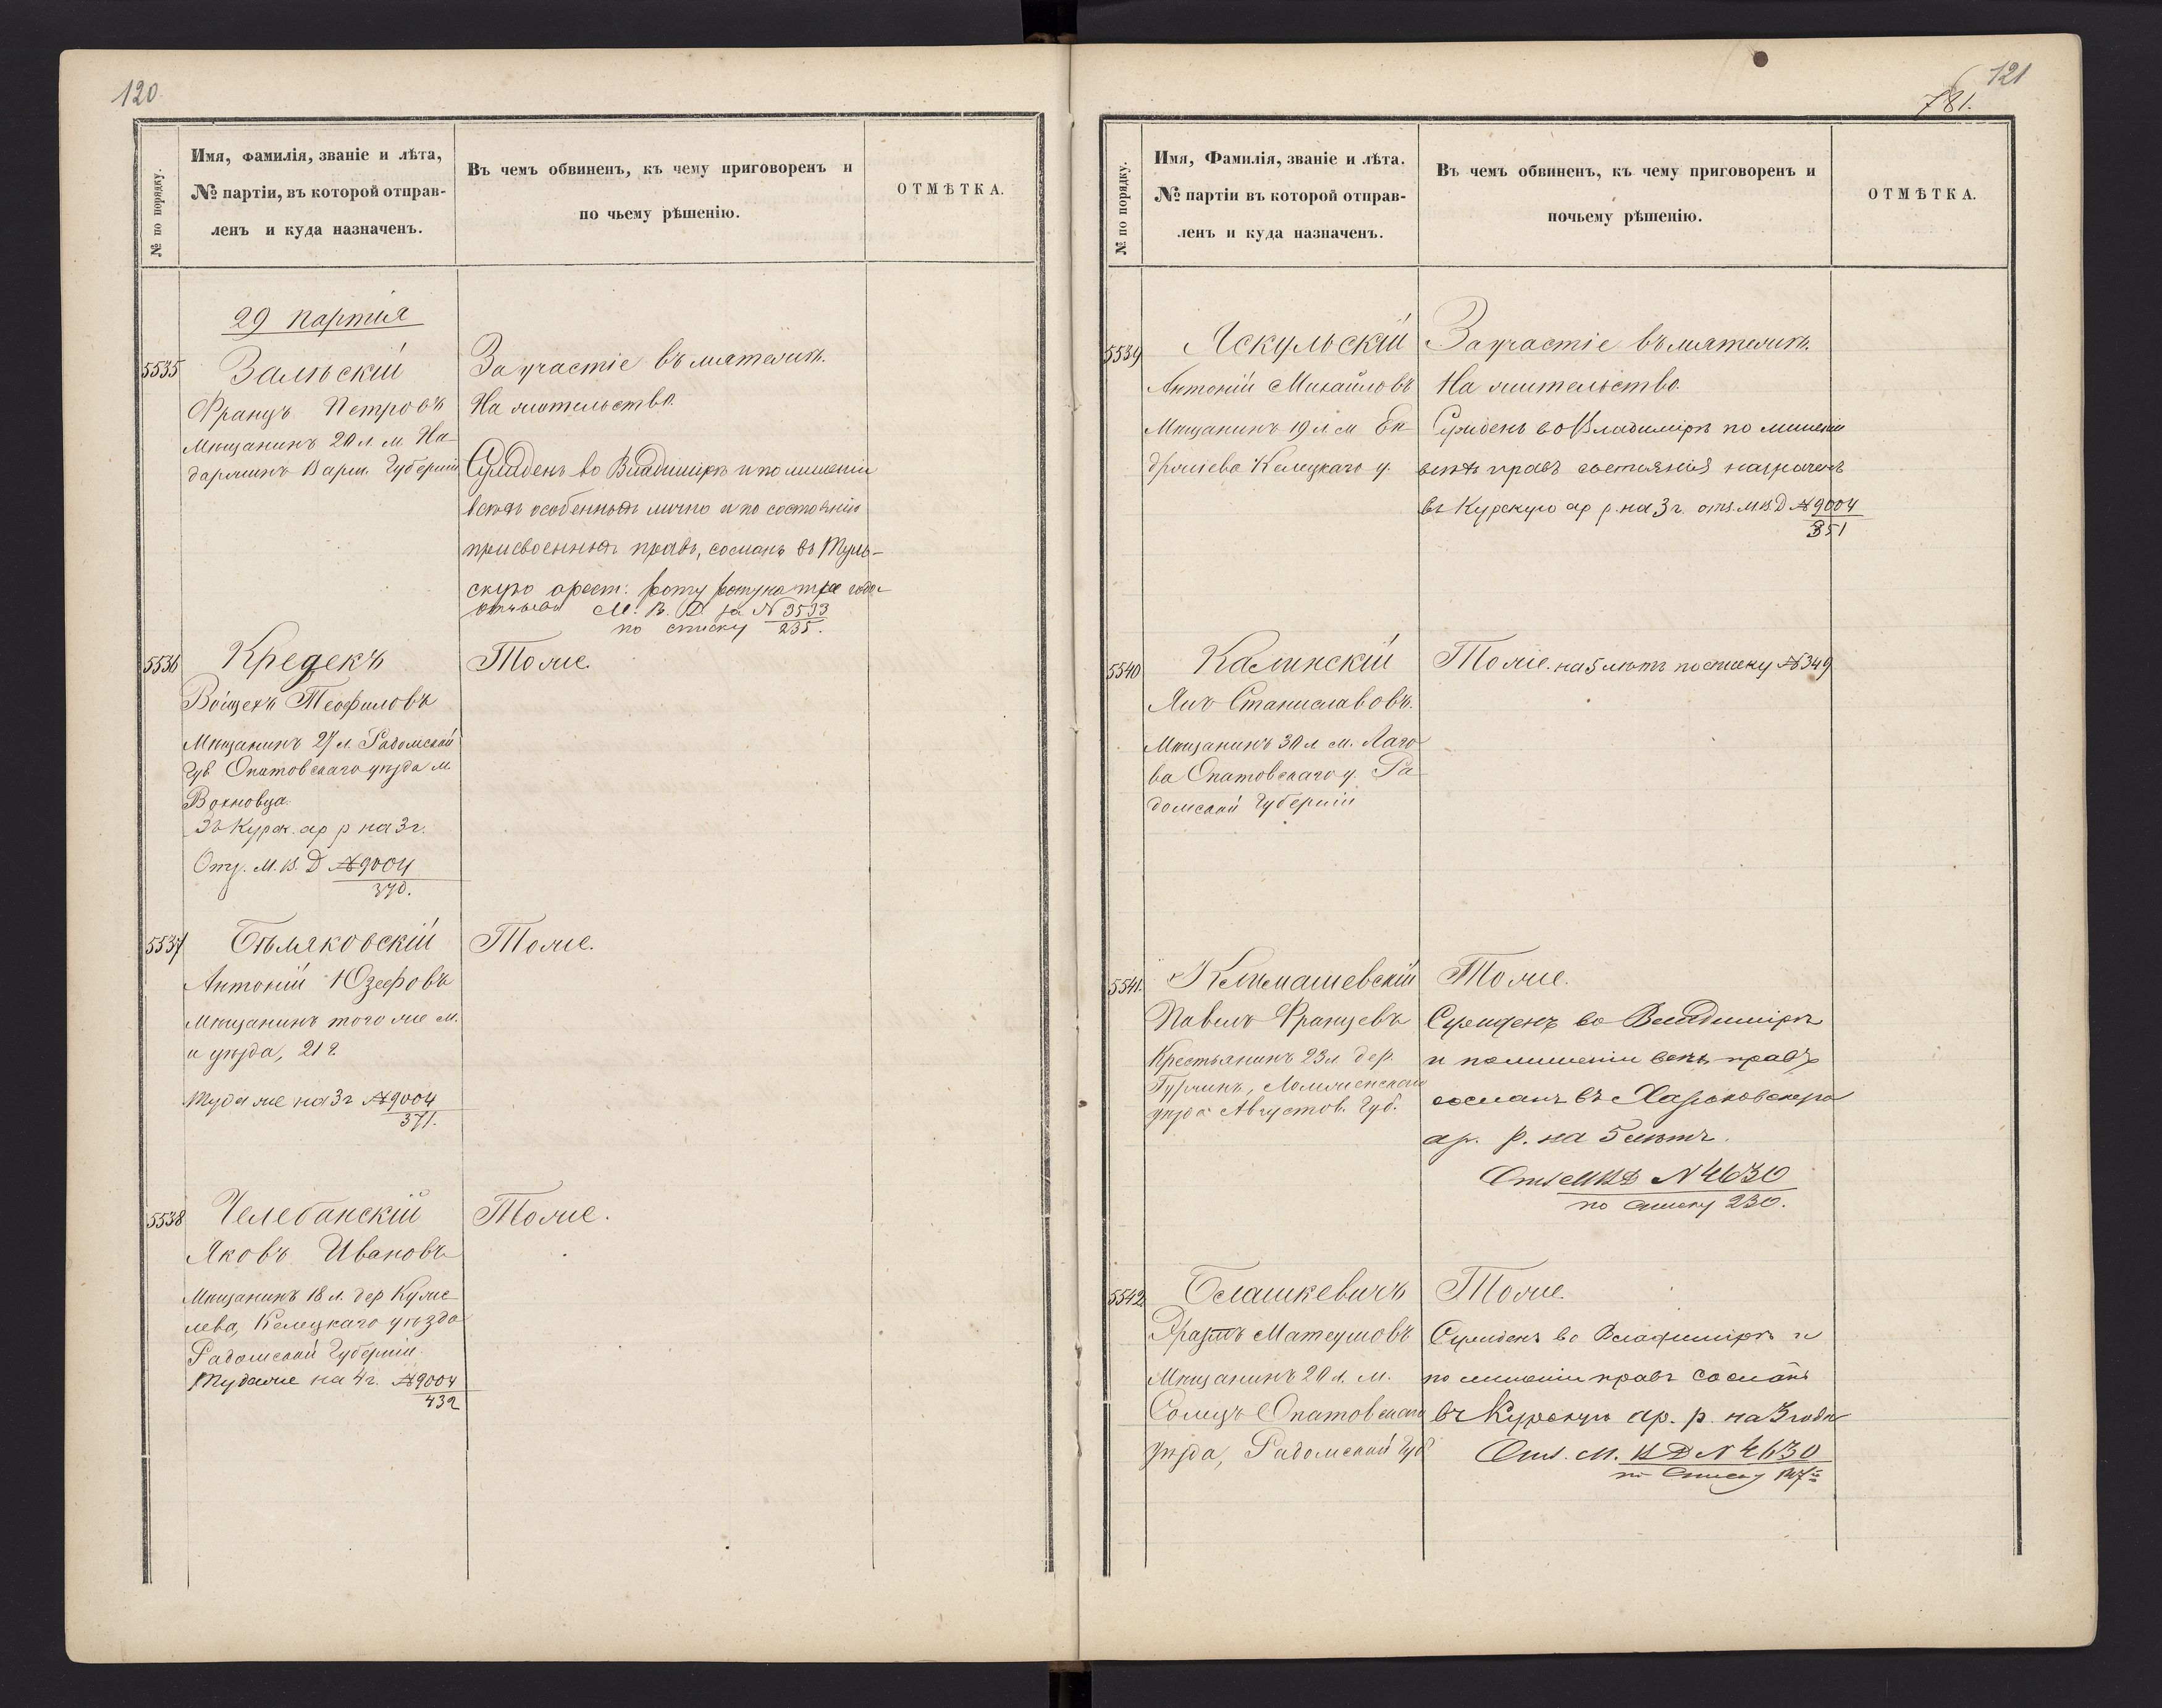 120.
№ по порядку.
Имя, фамилія, званіе и лѣта,
№ партіи, въ которой отправ-
ленъ и куда назначенъ.
Въ чемъ обвиненъ, къ чему приговоренъ и
по чьему рѣшенію.
ОТМѢТКА.
29 партия
5535
Зальскій
Францъ Петровъ
Мѣщанинъ 20 л м. На-
даржинъ Варш. Губерніи
За участіе въ мятежѣ.
На жительство.
Сужденъ во Владимірѣ и по лишеніи
всѣхъ особенныхъ лично и по состоянію
присвоенныхъ правъ, сосланъ въ Туль-
скую арест: роту роту на три года
М. В. Д. за N 3533
по списку 235.
5536
Кредекъ
Войцехъ Теофиловъ
Мѣщанинъ 27 л. Радомской
Губ Опатовскаго уѣзда м
Въ Курск. ар р на 3 г.
Отз. М. В. Д №9004
370.
Тоже.
5537
Бѣляковскій
Антоній Юзефовъ
Мѣщанинъ того же м.
и уѣзда, 21 г.
Туда же на 3 г №9004
371.
Тоже.
5538
Челебанскій
Яковъ Ивановъ
Мѣщанинъ 18 л. дер Куже-
лева, Келецкаго уѣзда
Радомской Губерніи.
Туда же на 4 г. №9004
432
Тоже.
121
781.
№ по порядку.
Имя, Фамилія, званіе и лѣта.
№ партіи въ которой отправ-
ленъ и куда назначенъ.
Въ чемъ обвиненъ, къ чему приговоренъ и
почьему рѣшенію.
ОТМѢТКА.
5539
Яскульскій
Антоній Михайловъ
Мѣщанинъ 19 л. м Ен-
држіева Келецкаго у.
За участіе въ мятежѣ.
На жительство.
Сужденъ во Владимірѣ по лишеніи
всѣхъ правъ состоянія назначенъ
въ Курскую ар р. на 3 г. отз. МВД №9004
351
5540
Калинскій
Янъ Станиславовъ.
Мѣщанинъ 30 л м. Лаго-
ва Опатовскаго у. Ра-
домской Губерніи
Тоже. на 5 лѣтъ по списку №349
5541.
Климашевскій
Павелъ Францевъ
Крестьянинъ 23 л дер.
Ломженскаго
уѣзда Августов. Губ.
Тоже.
Сужденъ во Владимірѣ
и по лишеніи всѣхъ правъ
сосланъ въ Харьковскую
ар. р. на 5 лѣтъ.
Отз МВД N 4630
по списку 230.
5542
Блашкевичъ
Матеушовъ
Мѣщанинъ 20 л. м.
Солецъ Опатовскаго
уѣзда, Радомской Губ
Тоже.
Сужденъ во Владимірѣ и
по лишеніи правъ сосланъ
въ Курскую ар. р. на 3 года
Отз. М. ВД N 4630
по списку